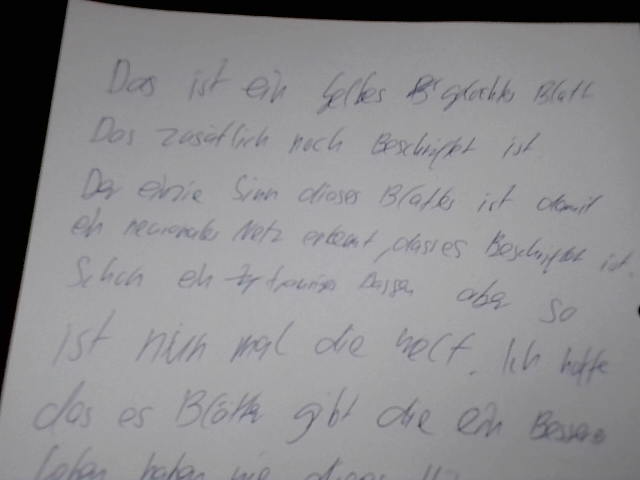 Das ist ein gelbes Blatt
Das zusätlich noch Beschriftet ist
Der einzie Sinn dieses Blattes ist damit
ein neuronales Netz erkennt, dass es Beschriftet ist.
Schon ein trauriges aber so
ist nun mal die welt. Ich hoffe
das es Blätter gibt die ein Besseres
leben haben wie dieses